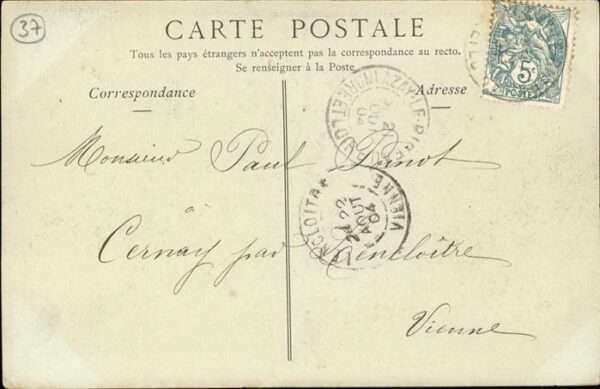 37
CARTE POSTALE
Tous les pays étrangers n'acceptent pas la correspondance au recto.
Se renseigner à la Poste.
Correspondance
Adresse
5c
POSTES
AZAY-LE-RIDEAU
INDRE ET LOIRE
Monsieur Paul
Cernay par Lencloître
Vienne
LENCLOITRE
VIENNE
22
AOUT
04